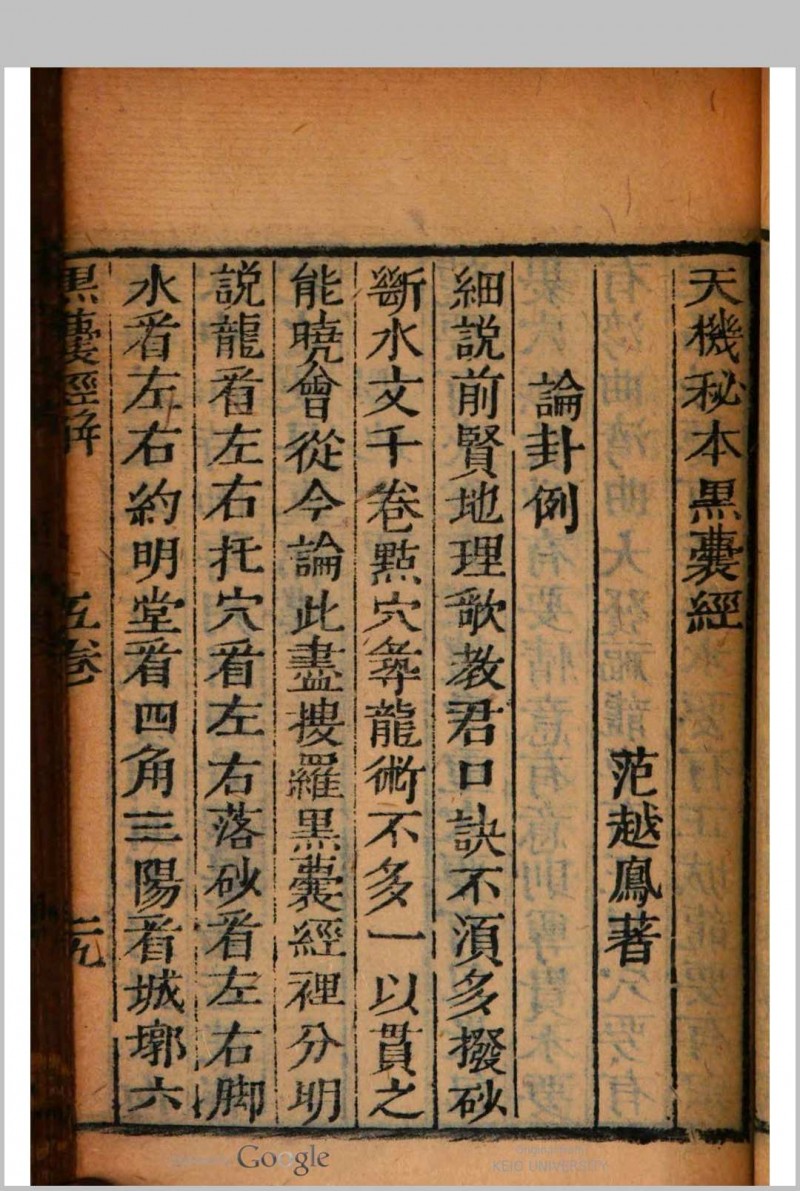 天機秘本黒囊經
范越鳳著
論卦例
細說前賢地理歌教君口訣不湏多撥砂
斷水文千卷㸃穴尋龍術不多一以貫之
能曉會從今論此盡搜羅黒囊經裡分明
說龍看左右托穴看左右落砂看左右脚
水看左右約明堂看四角三陽看城墎六
黒囊經解 五卷
Google
KEIO UNIVERSITY